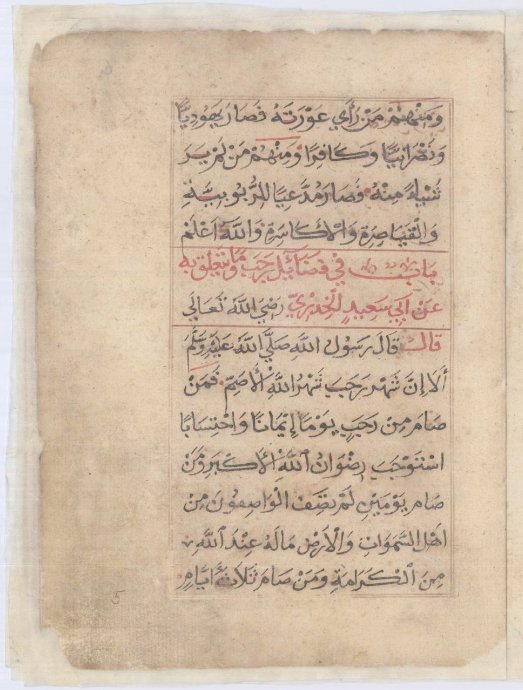 وَمِنْهُمْ مَنْ رُأي عَوْرَتَهُ فَصَارَ يَهُودِيًّا
وَنَصْرَانِيًّا وَكَافِرًا وَمِنْهُمْ مَنْ لَمْ يَرَ
شَيْئًا مِنْهُ فَصَارَ مُدَّعِيًا لِلرُّبُوبِيَّةِ
وَالْقَيَاصِرَةِ وَالْأَكَاسِرَةِ وَاللَّهُ أَعْلَمُ
باب في فضائل رجب وما يتعلق به
عَنْ أَبِي سَعِيدٍ الْخُدْرِيِّ رَضِيَ اللَّهُ تَعَالَى
قَالَ قَالَ رَسُولُ اللَّهِ صَلَّى اللَّهُ عَلَيْهِ وَسَلَّمَ
أَلَا إِنَّ شَهْرَ رَجَبَ شَهْرُ اللَّهِ الْأَصَمُّ فَمَنْ
صَامَ مِنْ رَجَبٍ يَوْمًا إِيْمَانًا وَاحْتِسَابًا
اسْتَوْجَبَ رِضْوَانَ اللَّهِ الْأَكْبَرِ وَمَنْ
صَامَ يَوْمَيْنِ لَمْ يَصِفِ الْوَاصِفُونَ مِنْ
أَهْلِ السَّمَوَاتِ وَالْأَرْضِ مَا لَهُ عِنْدَ اللَّهِ
مِنَ الْكَرَامَةِ وَمَنْ صَامَ ثَلَاثَةَ أَيَّامٍ
5